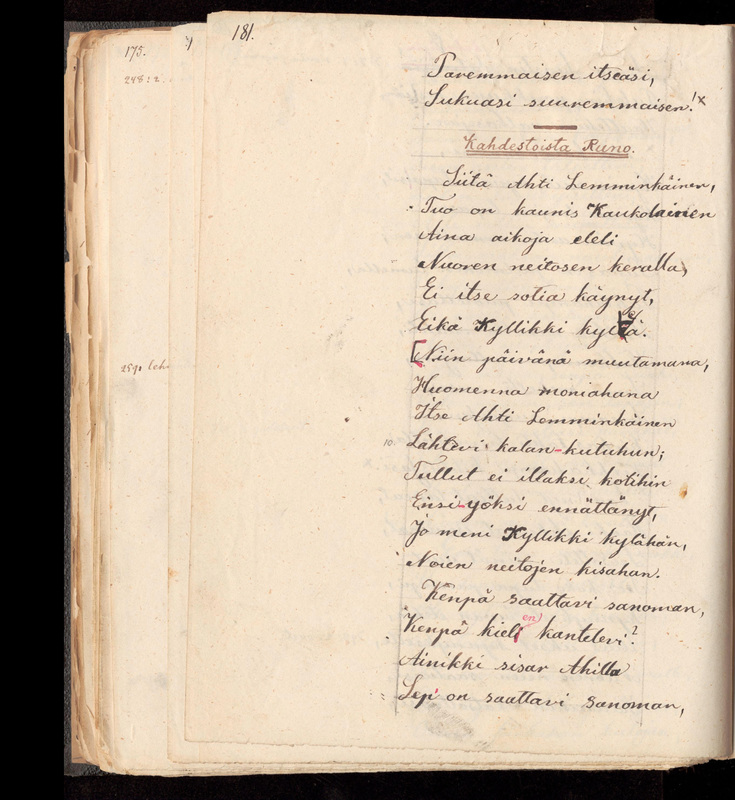 181.
175.
248:2.
Paremmaisen itseäsi,
Sukuasi suuremmaisen!x
Kahdestoista Runo.
Siitä Ahti Lemminkäinen,
Tuo on kaunis Kaukolainen
Aina aikoja eleli
Nuoren neitosen keralla,
Ei itse sotia käynyt,
Eikä Kyllikki kyleä.
[Niin päivänä muutamana,
Huomenna moniahana
Itse Ahti Lemminkäinen
10. Lähtevi kalan-kutuhun;
Tullut ei illaksi kotihin
Ensi-yöksi ennättänyt,
Jo meni Kyllikki kylähän,
Noien neitojen kisahan.
Kenpä saattavi sanoman,
Kenpä kielen kantelevi?
Ainikki sisar Ahilla
Se on saattavi sanoman,